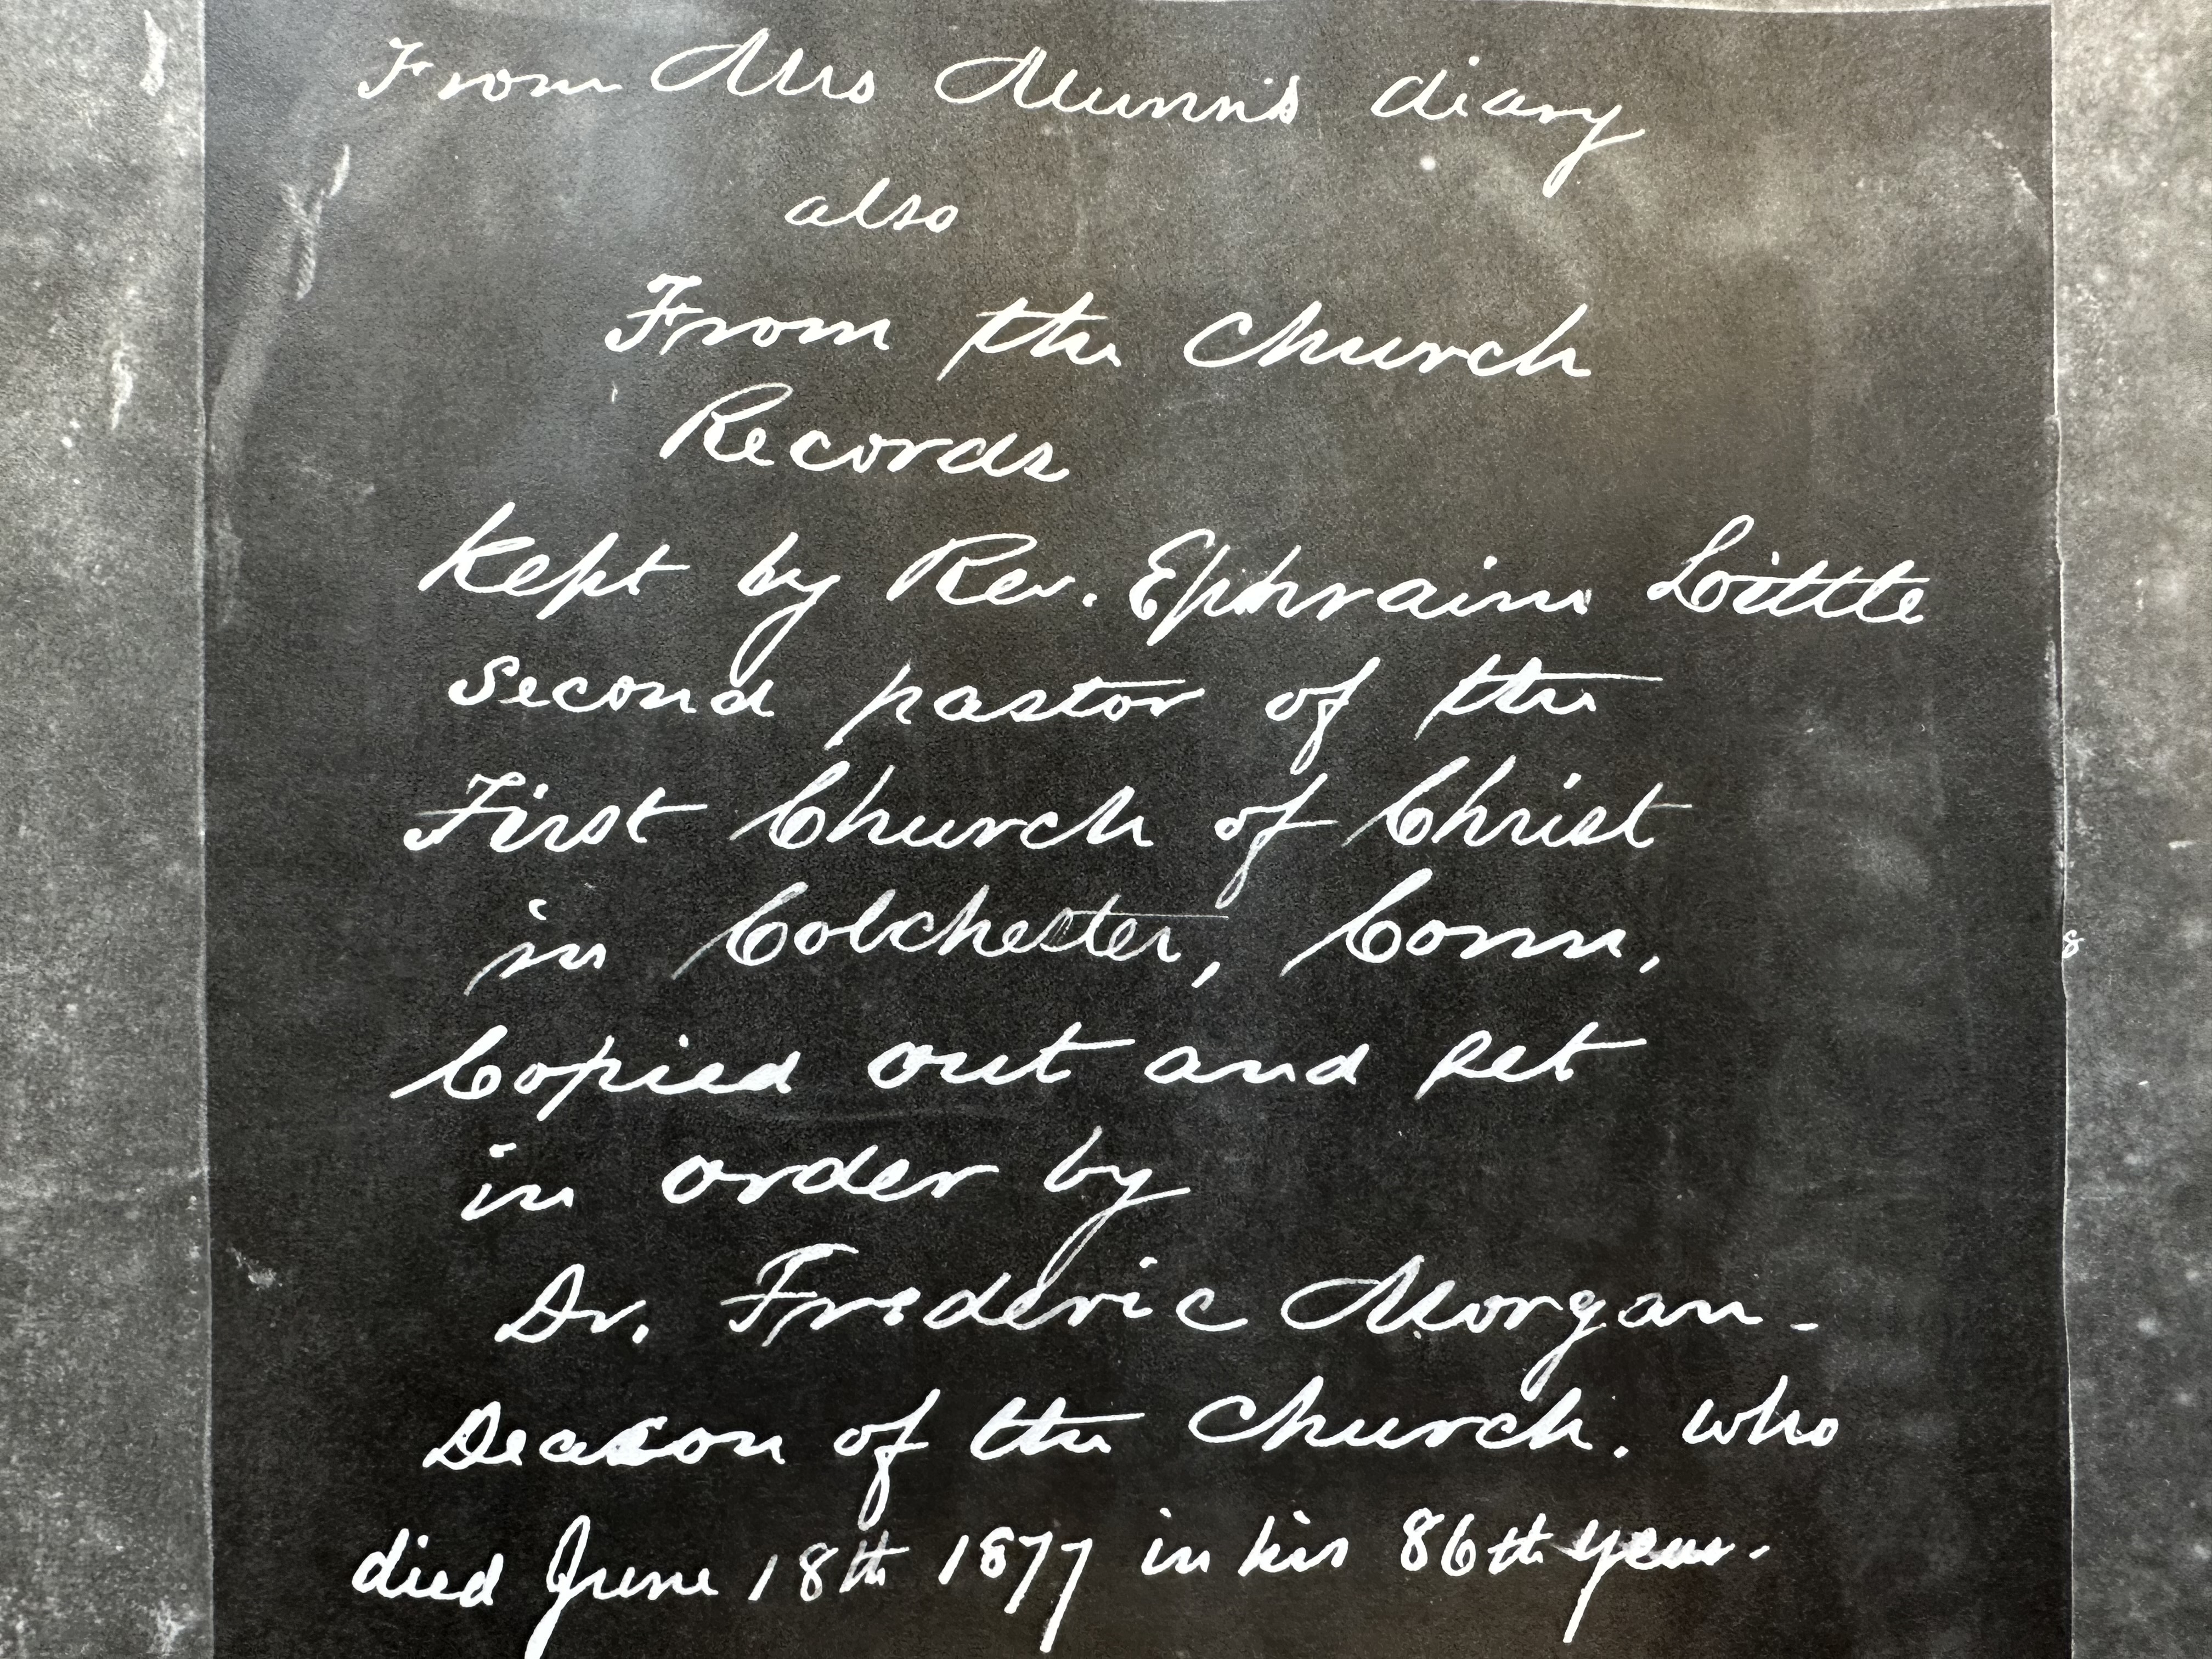 From Mrs Munn's diary
also
From the Church
Records
Kept by Rev. Ephraim Little
Second pastor of the
First Church of Christ
in Colchester, Conn,
Copied out and set
in order by
Dr. Frederic Morgan -
Deacon of the Church. who
died June 18th 1877 in his 86th year.